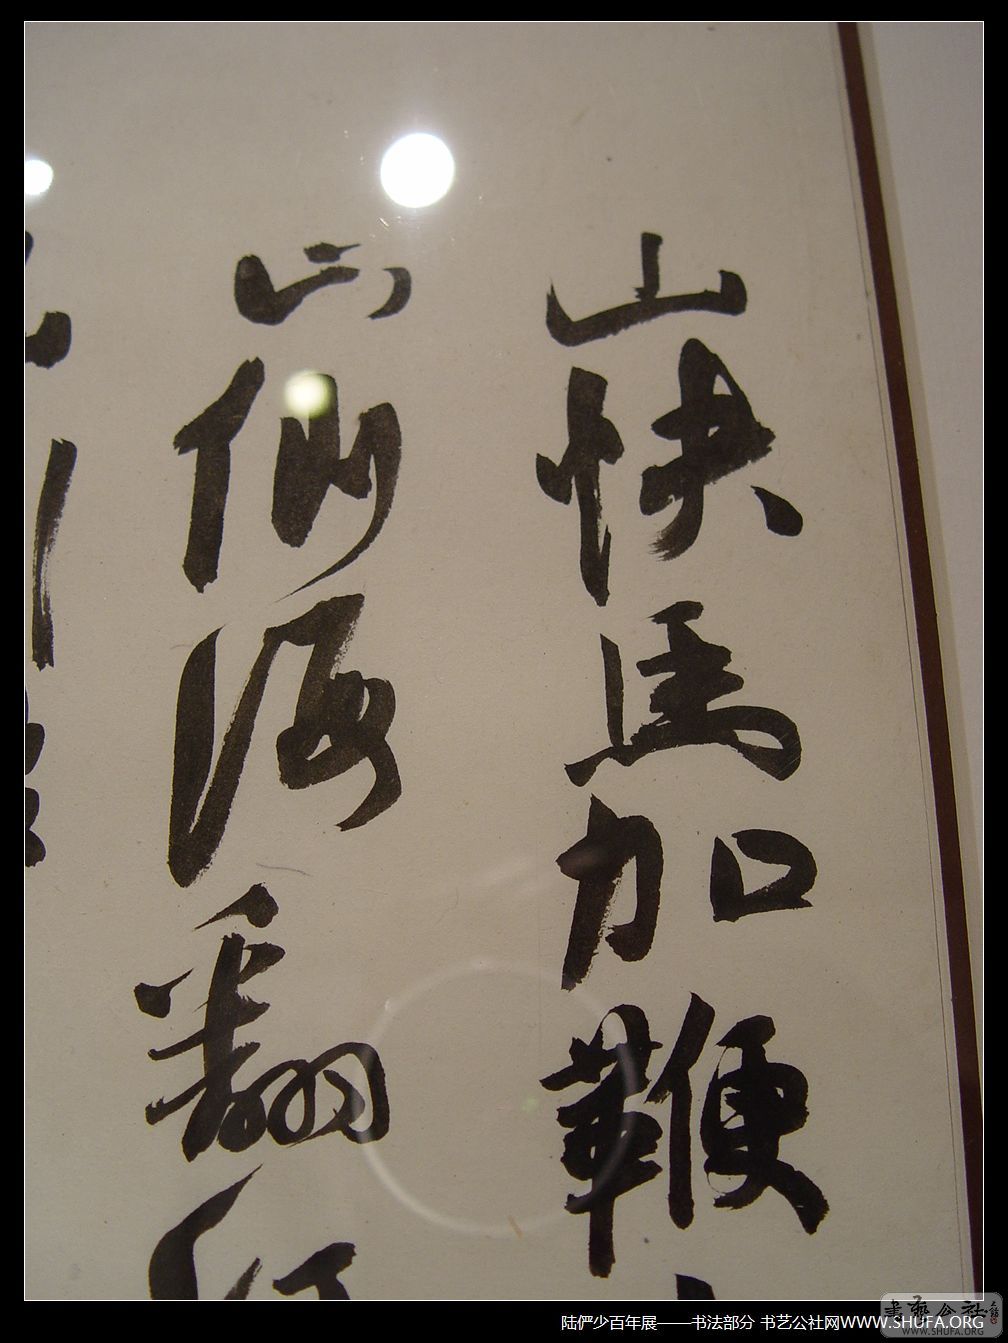 山快馬加鞭
山倒海翻江
陆俨少百年展——书法部分 书艺公社网WWW.SHUFA.ORG
書藝公社
WWW.SHUFA.ORG